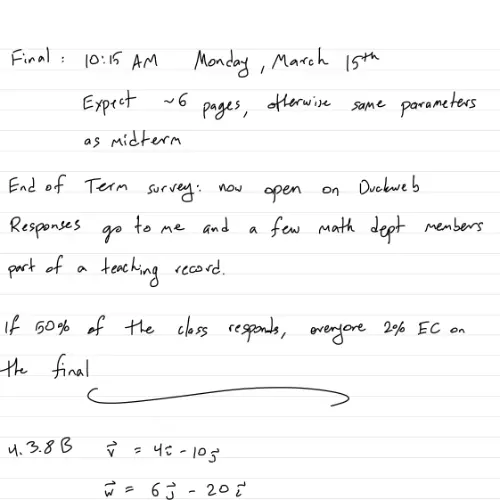 Final: 10:15 AM Monday, March 15th
Expect ~6 pages, otherwise same parameters
as midterm
End of Term survey: now open on Duckweb
Responses go to me and a few math dept members
part of a teaching record.
If 50% of the class responds, everyone 2% EC on
the final
4.3.8 B v⃗ = 4i⃗ - 10j⃗
w⃗ = 6j⃗ - 20i⃗